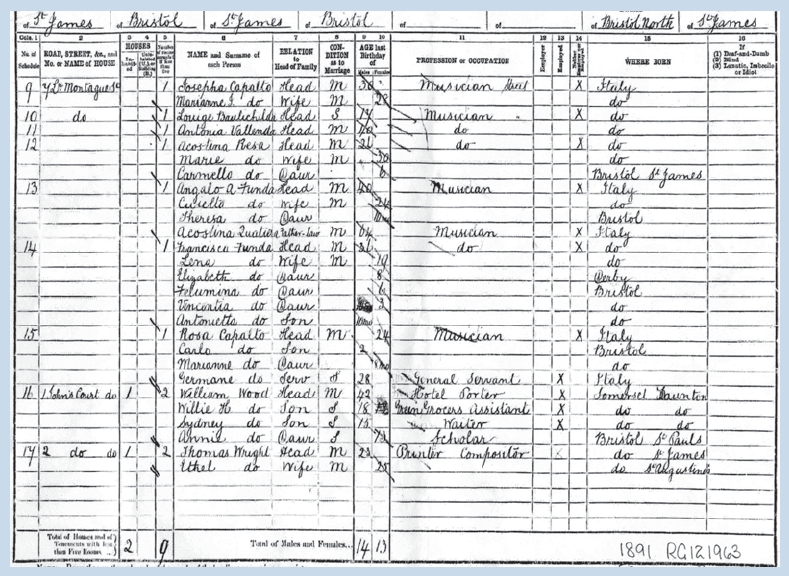 of St James of Bristol of St James of Bristol of of of Bristol North of St James
Cols. 1 2 3 4 5 6 7 8 9 10 11 12 13 14 15 16
No. of Schedule ROAD, STREET, &c., and No. or NAME of HOUSE HOUSES NAME and Surname of each Person RELATION to Head of Family CONDITION as to Marriage AGE last Birthday of Males Females PROFESSION or OCCUPATION Employer Employed WHERE BORN If (1) Deaf-and-Dumb (2) Blind (3) Lunatic, Imbecile or Idiot
9 1 Josepha Capalto Head M 30 Musician Street X Italy
Marianne do Wife M do
10 do 1 Head S Musician X do
11 1 Antonia Vallenda Head M 40 do do
12 1 Acostina Resa Head M do X do
Marie do Wife M 30 do
Carmello do Daur 6 Bristol St James
13 1 Angalo A Funda Head M 40 Musician X Italy
do Wife M do
Theresa do Daur Bristol
Acostina M 64 Musician X Italy
14 1 Francisca Funda Head M do X do
Lena do Wife M do
Elizabeth do Daur 8 Derby
Filumina do Daur 6 Bristol
Vincortia do Daur 3 do
Antonietta do Son do
15 1 Rosa Capalto Head M 24 Musician X Italy
Carlo do Son 2 Bristol
Marianne do Daur do
Germane do Serv S 28 General Servant X Italy
16 1 John's Court do 1 2 William Wood Head M 42 Hotel Porter X Somerset Taunton
Willie H do Son S 18 Green Grocers Assistant X do do
Sydney do Son S 15 Waiter X do do
Annie do Daur S Scholar Bristol St Pauls
17 2 do do 1 2 Thomas Wright Head M 23 Printer Compositor X do St James
Ethel do Wife M 25 do St Augustines
Total of Houses and of Tenements with less than Five Rooms 2 9 Total of Males and Females... 14 13
1891 RG121963